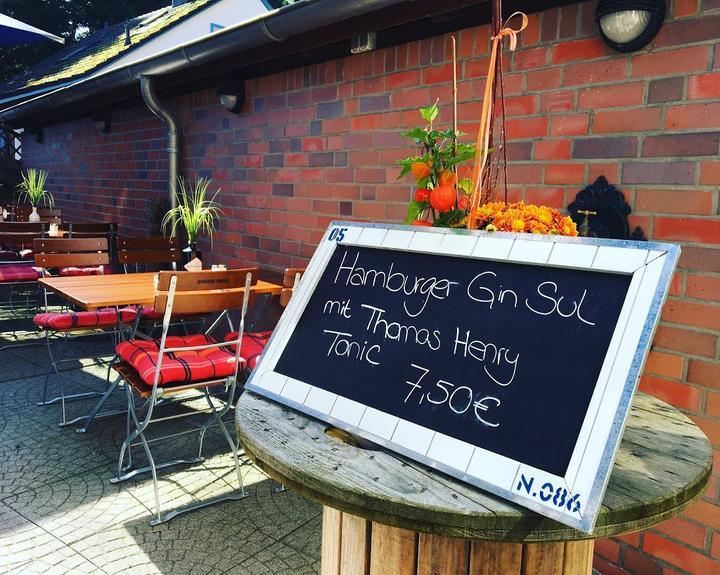 05
Hamburger Gin Sul
mit Thomas Henry
Tonic 7,50€
N.086